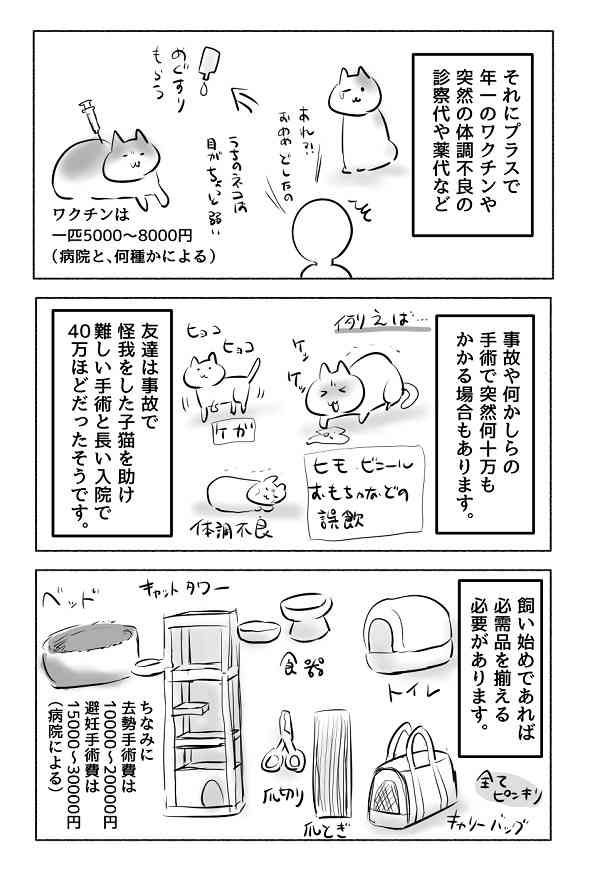 それにプラスで
年一のワクチンや
突然の体調不良の
診察代や薬代など
あれ?!
おめめどしたの
うちのネコは
目がちょっと弱い
めぐすり
もらう
ワクチンは
一匹5000〜8000円
(病院と、何種かによる)
事故や何かしらの
手術で突然何十万も
かかる場合もあります。
例えば…
ケッ
ケッ
ヒモ・ビニール
おもちゃなどの
誤飲
ヒョコ
ヒョコ
ケガ
体調不良
友達は事故で
怪我をした子猫を助け
難しい手術と長い入院で
40万ほどだったそうです。
飼い始めであれば
必需品を揃える
必要があります。
トイレ
食器
キャットタワー
ベッド
全て
ピンキリ
キャリーバッグ
爪とぎ
爪切り
ちなみに
去勢手術費は
10000〜20000円
避妊手術費は
15000〜30000円
(病院による)